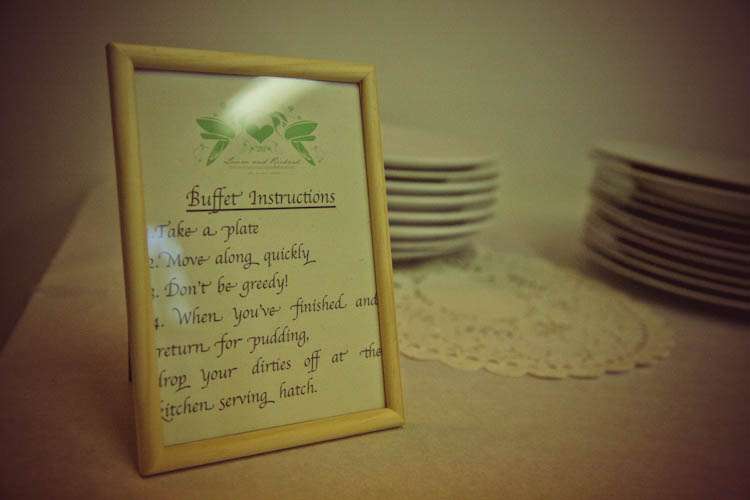 Laura and Richard
Buffet Instructions
Take a plate
2. Move along quickly
3. Don't be greedy!
4. When you've finished and
return for pudding,
drop your dirties off at the
kitchen serving hatch.